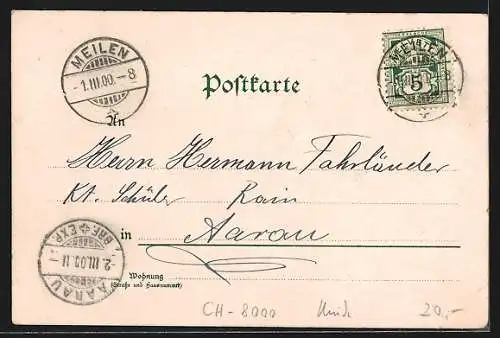 MEILEN
-1.III.00.-8
Postkarte
MEILEN
5
An
Herrn Hermann Fahrländer
Kt. Schüler Rain
in Aarau
AARAU
2.III.00.11
BRF. EXP.
Wohnung
(Straße und Hausnummer)
CH-8000
20,-